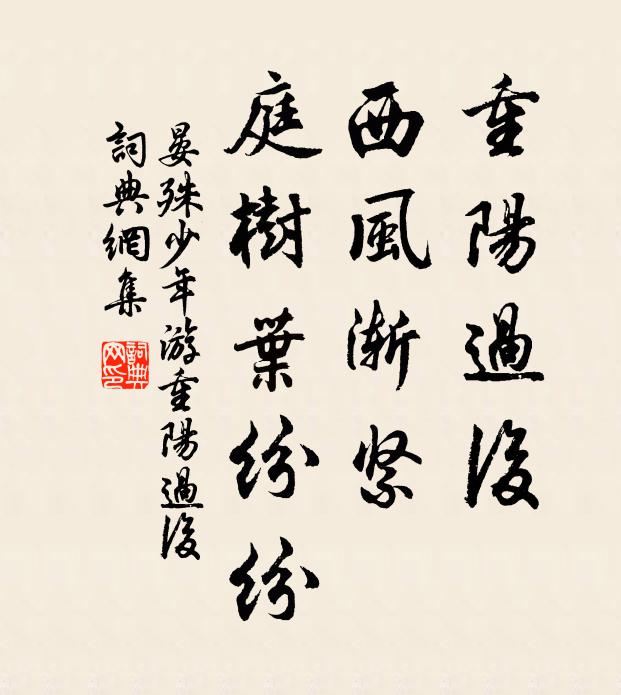 重陽過後
西風漸緊
庭樹葉紛紛
晏殊少年游重陽過後
詞典網集
詞典网印